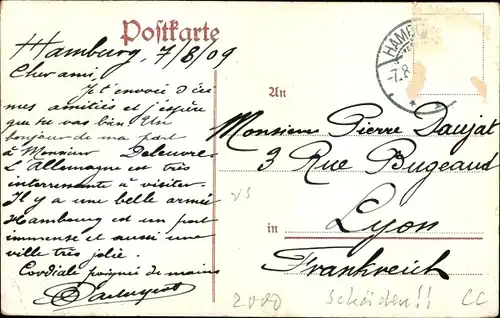 Postkarte
Hambourg, 7/8/09
Cher ami,
Je t'envoie d'ici
mes amitiés et j'espère
que tu vas bien. Un
bonjour de ma part
à Monsieur Deleuvre.
L'Allemagne est très
interrenante à visiter.
Il y a une belle armée
Hambourg est un port
immense et aussi une
ville très jolie.
Cordiale poignée de mains
HAMB
-7.8
An
Monsieur Pierre Daujat
3 Rue Bugeaud
in Lyon
Frankreich
2000
CC